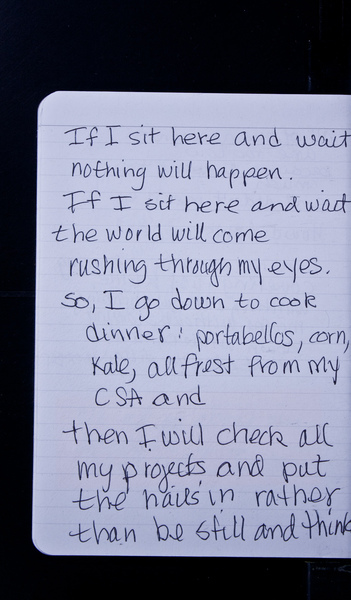 If I sit here and wait
nothing will happen.
If I sit here and wait
the world will come
rushing through my eyes.
So, I go down to cook
dinner: portabellos, corn,
Kale, all frest from my
CSA and
then I will check all
my projects and put
the nails in rather
than be still and think